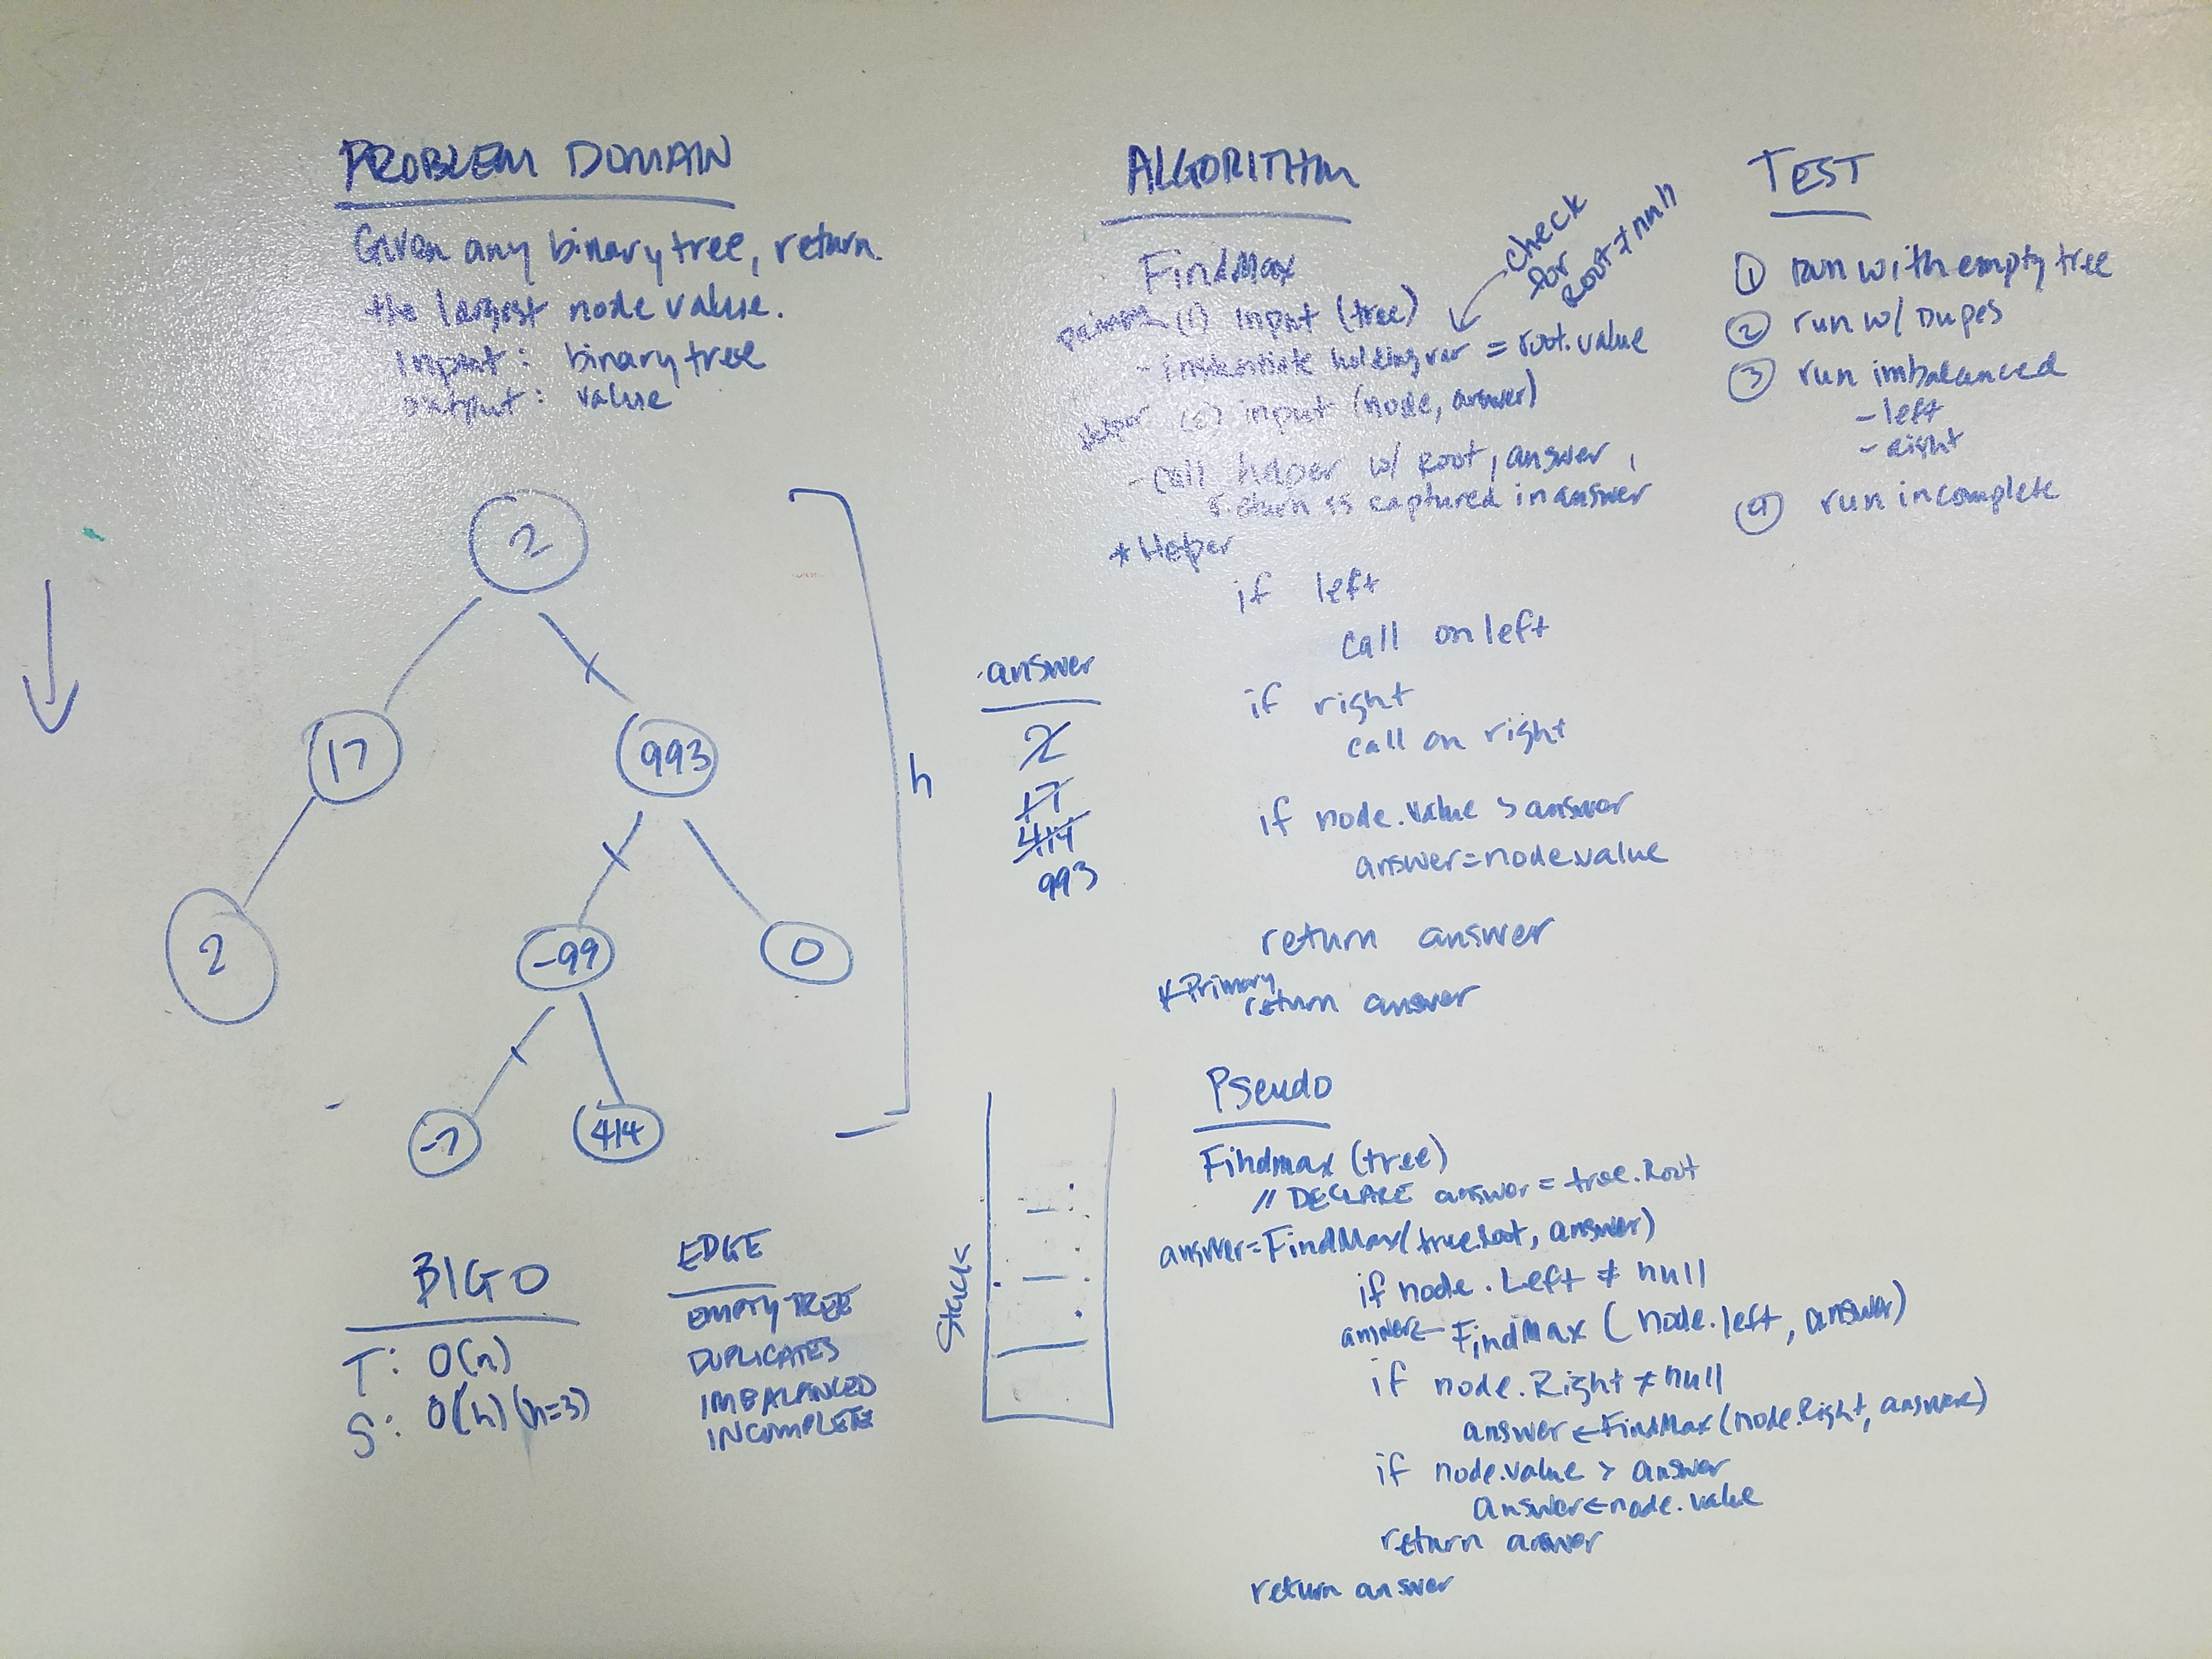 PROBLEM DOMAIN
Given any binary tree, return
the largest node value.
Input: binary tree
output: value
2
17
993
2
-99
0
-7
414
h
BIG O
T: O(n)
S: O(h) (h=3)
EDGE
EMPTY TREE
DUPLICATES
IMBALANCED
INCOMPLETE
answer
2
17
414
993
Stack
ALGORITHM
FindMax
check
for
root ≠ null
primary (1) input (tree)
- instantiate holding var = root.value
helper (2) input (node, answer)
- call helper w/ root, answer,
return is captured in answer
* Helper
if left
call on left
if right
call on right
if node.value > answer
answer = node.value
return answer
* Primary
return answer
Pseudo
Findmax (tree)
// DECLARE answer = tree.Root
answer = FindMax(tree.Root, answer)
if node.Left ≠ null
answer ← FindMax (node.left, answer)
if node.Right ≠ null
answer ← FindMax (node.Right, answer)
if node.value > answer
answer ← node.value
return answer
return answer
TEST
① run with empty tree
② run w/ Dupes
③ run imbalanced
- left
- right
④ run incomplete